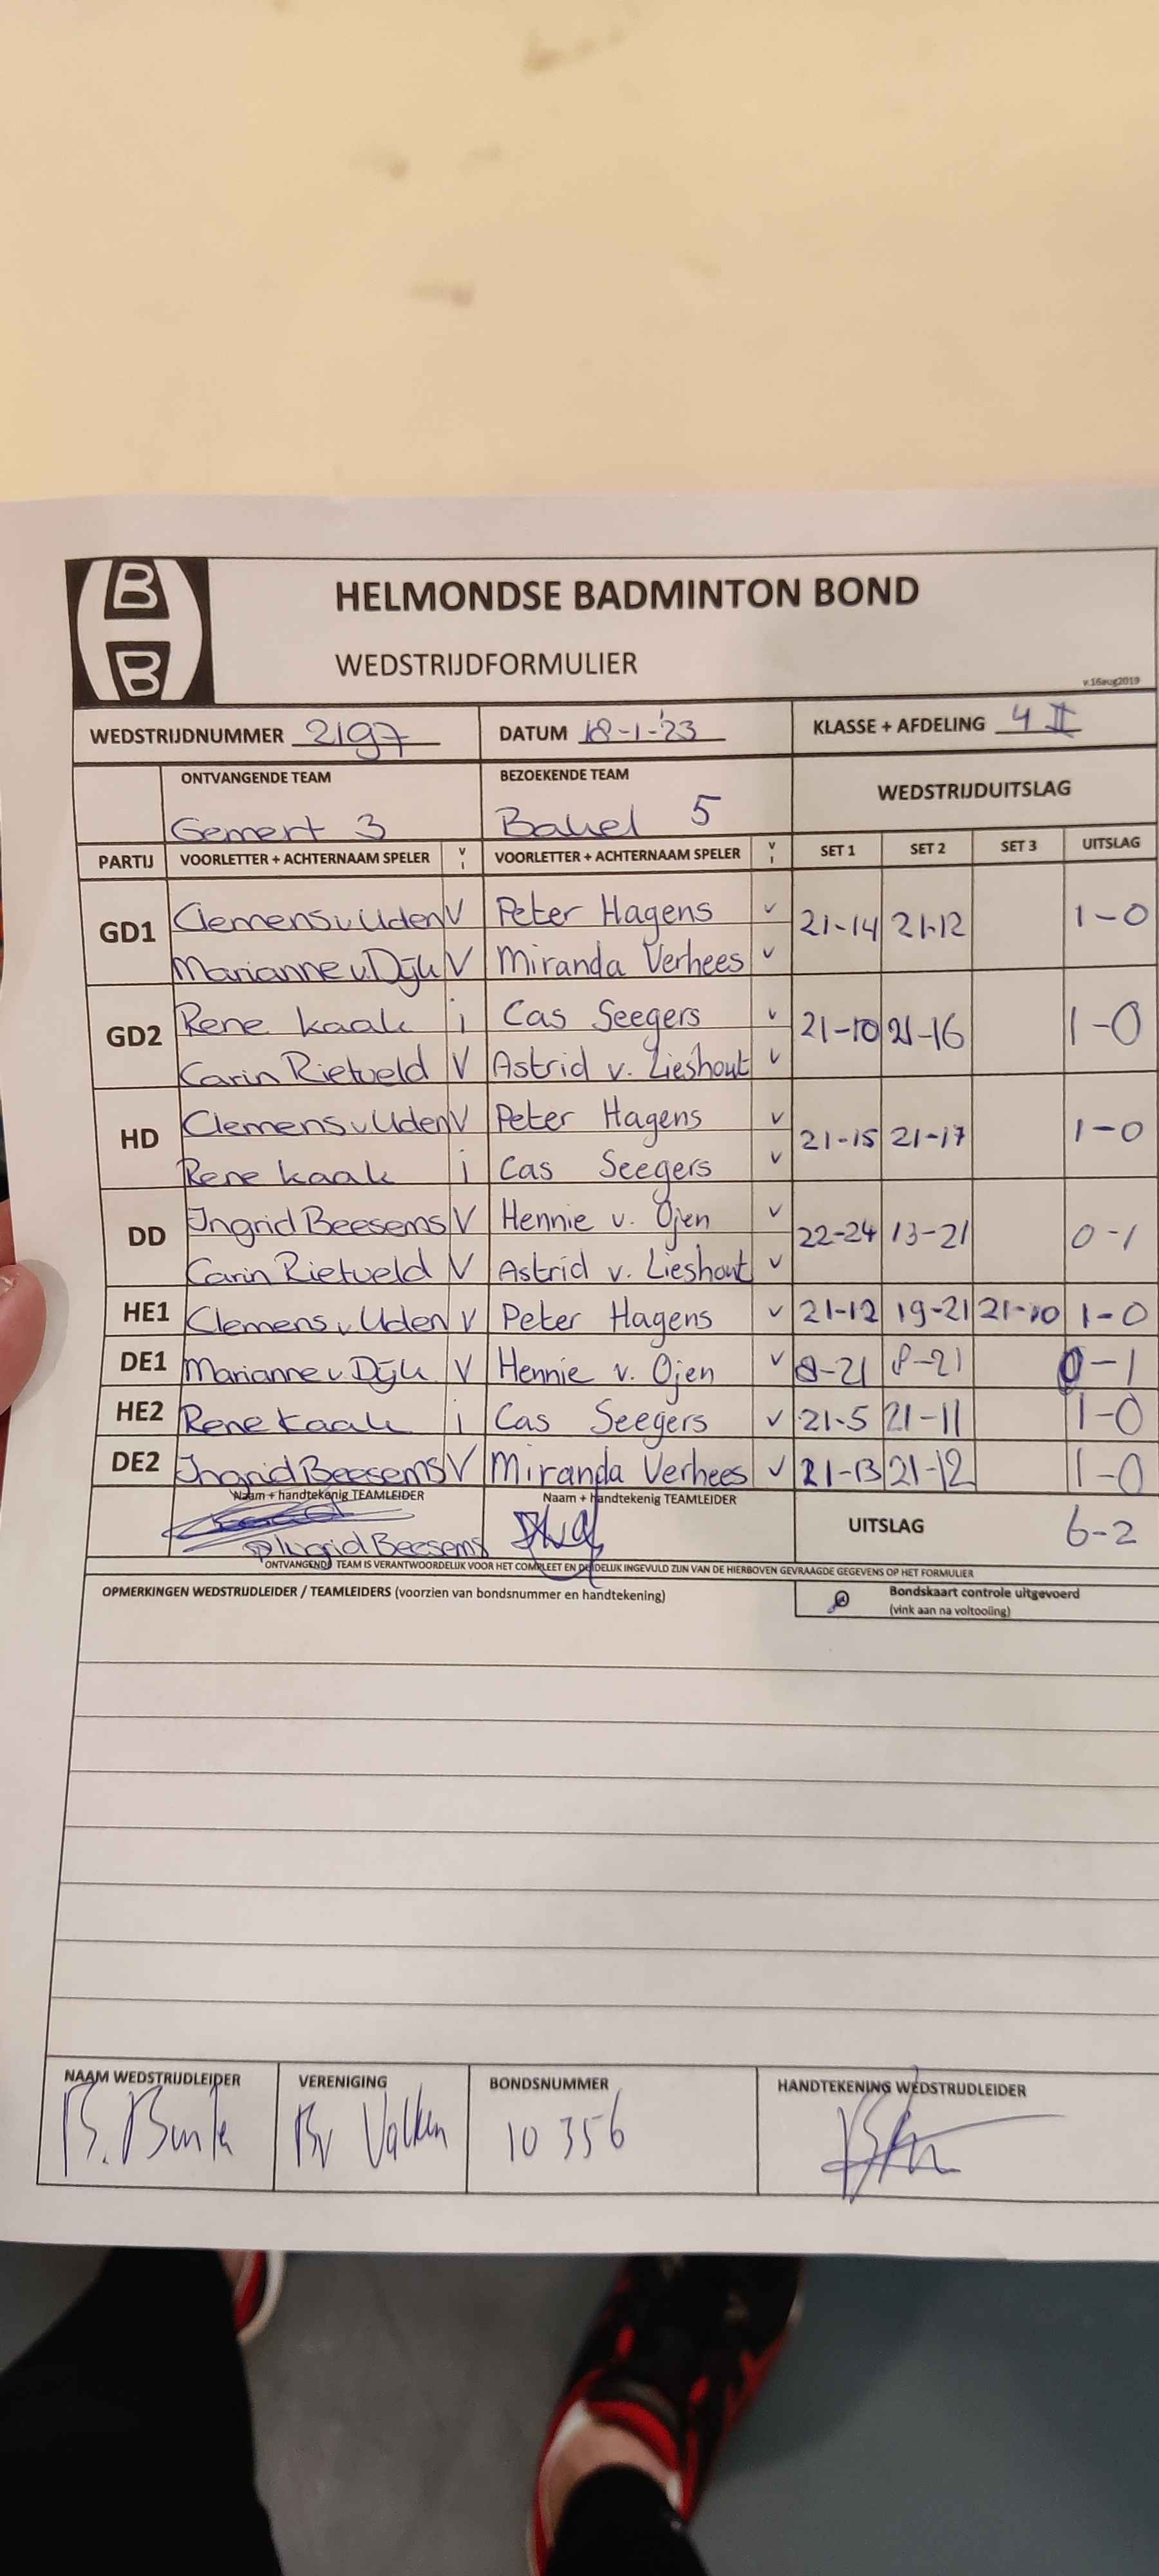 B
B
HELMONDSE BADMINTON BOND
WEDSTRIJDFORMULIER
v.16aug2019
WEDSTRIJDNUMMER 2197 DATUM 18-1-'23 KLASSE + AFDELING 4 II
ONTVANGENDE TEAM BEZOEKENDE TEAM WEDSTRIJDUITSLAG
Gemert 3 Bakel 5
PARTIJ VOORLETTER + ACHTERNAAM SPELER V I VOORLETTER + ACHTERNAAM SPELER V I SET 1 SET 2 SET 3 UITSLAG
GD1 Clemens v Uden V Peter Hagens v 21-14 21-12 1-0
Marianne v. Dijk V Miranda Verhees v
GD2 Rene Kaak i Cas Seegers v 21-10 21-16 1-0
Carin Rietveld V Astrid v. Lieshout v
HD Clemens v Uden V Peter Hagens v 21-15 21-17 1-0
Rene Kaak i Cas Seegers v
DD Ingrid Beesems V Hennie v. Ojen v 22-24 13-21 0-1
Carin Rietveld V Astrid v. Lieshout v
HE1 Clemens v Uden V Peter Hagens v 21-12 19-21 21-10 1-0
DE1 Marianne v. Dijk V Hennie v. Ojen v 8-21 8-21 0-1
HE2 Rene Kaak i Cas Seegers v 21-5 21-11 1-0
DE2 Ingrid Beesems V Miranda Verhees v 21-13 21-12 1-0
Naam + handtekenig TEAMLEIDER Naam + handtekenig TEAMLEIDER
Ingrid Beesems UITSLAG 6-2
ONTVANGENDE TEAM IS VERANTWOORDELIJK VOOR HET COMPLEET EN DUIDELIJK INGEVULD ZIJN VAN DE HIERBOVEN GEVRAAGDE GEGEVENS OP HET FORMULIER
OPMERKINGEN WEDSTRIJDLEIDER / TEAMLEIDERS (voorzien van bondsnummer en handtekening) Bondskaart controle uitgevoerd
(vink aan na voltooiing)
NAAM WEDSTRIJDLEIDER VERENIGING BONDSNUMMER HANDTEKENING WEDSTRIJDLEIDER
B. BV 10356